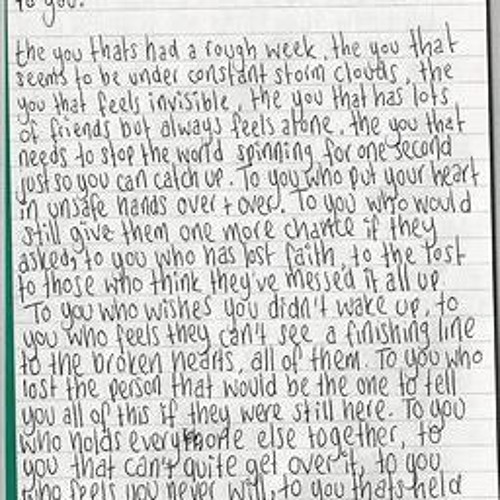 to you.
the you thats had a rough week, the you that
seems to be under constant storm clouds, the
you that feels invisible, the you that has lots
of friends but always feels alone, the you that
needs to stop the world spinning for one second
just so you can catch up. To you who put your heart
in unsafe hands over + over. To you who would
still give them one more chance if they
asked, to you who has lost faith, to the lost
to those who think they've messed it all up
To you who wishes you didn't wake up, to
you who feels they can't see a finishing line
to the broken hearts, all of them. To you who
lost the person that would be the one to tell
you all of this if they were still here. To you
who holds everyone else together, to
you that can't quite get over it, to you
who feels you never will, to you thats held